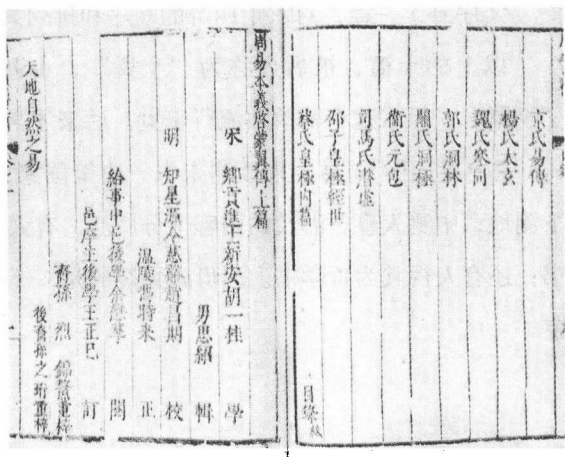 京氏易傳
楊氏太玄
魏氏叅同
郭氏洞林
關氏洞極
衞氏元包
司馬氏潛虛
邵子皇極經世
蔡氏皇極内篇
目錄
周易本義啓蒙翼傳上篇
宋 鄉貢進士新安胡一桂 學
男思紹 輯
明 知星源令慈谿趙昌期 校
溫陵馮特來 正
給事中邑後學余懋孳 閱
邑庠生後學王正己 訂
裔孫 烈 重梓
後裔孫之珩重梓
天地自然之易